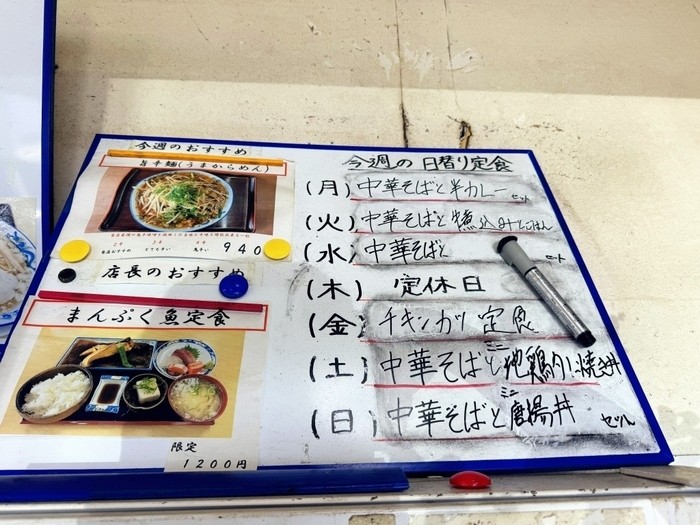 今週のおすすめ
旨辛麺(うまからめん)
940
店長のおすすめ
まんぷく魚定食
限定
1200円
今週の日替り定食
(月) 中華そばと半カレーセット
(火) 中華そばと煮込みとごはん
(水) 中華そばと セット
(木) 定休日
(金) チキンカツ定食
(土) 中華そばとミニ地鶏タレ焼き丼
(日) 中華そばとミニ唐揚丼 セット